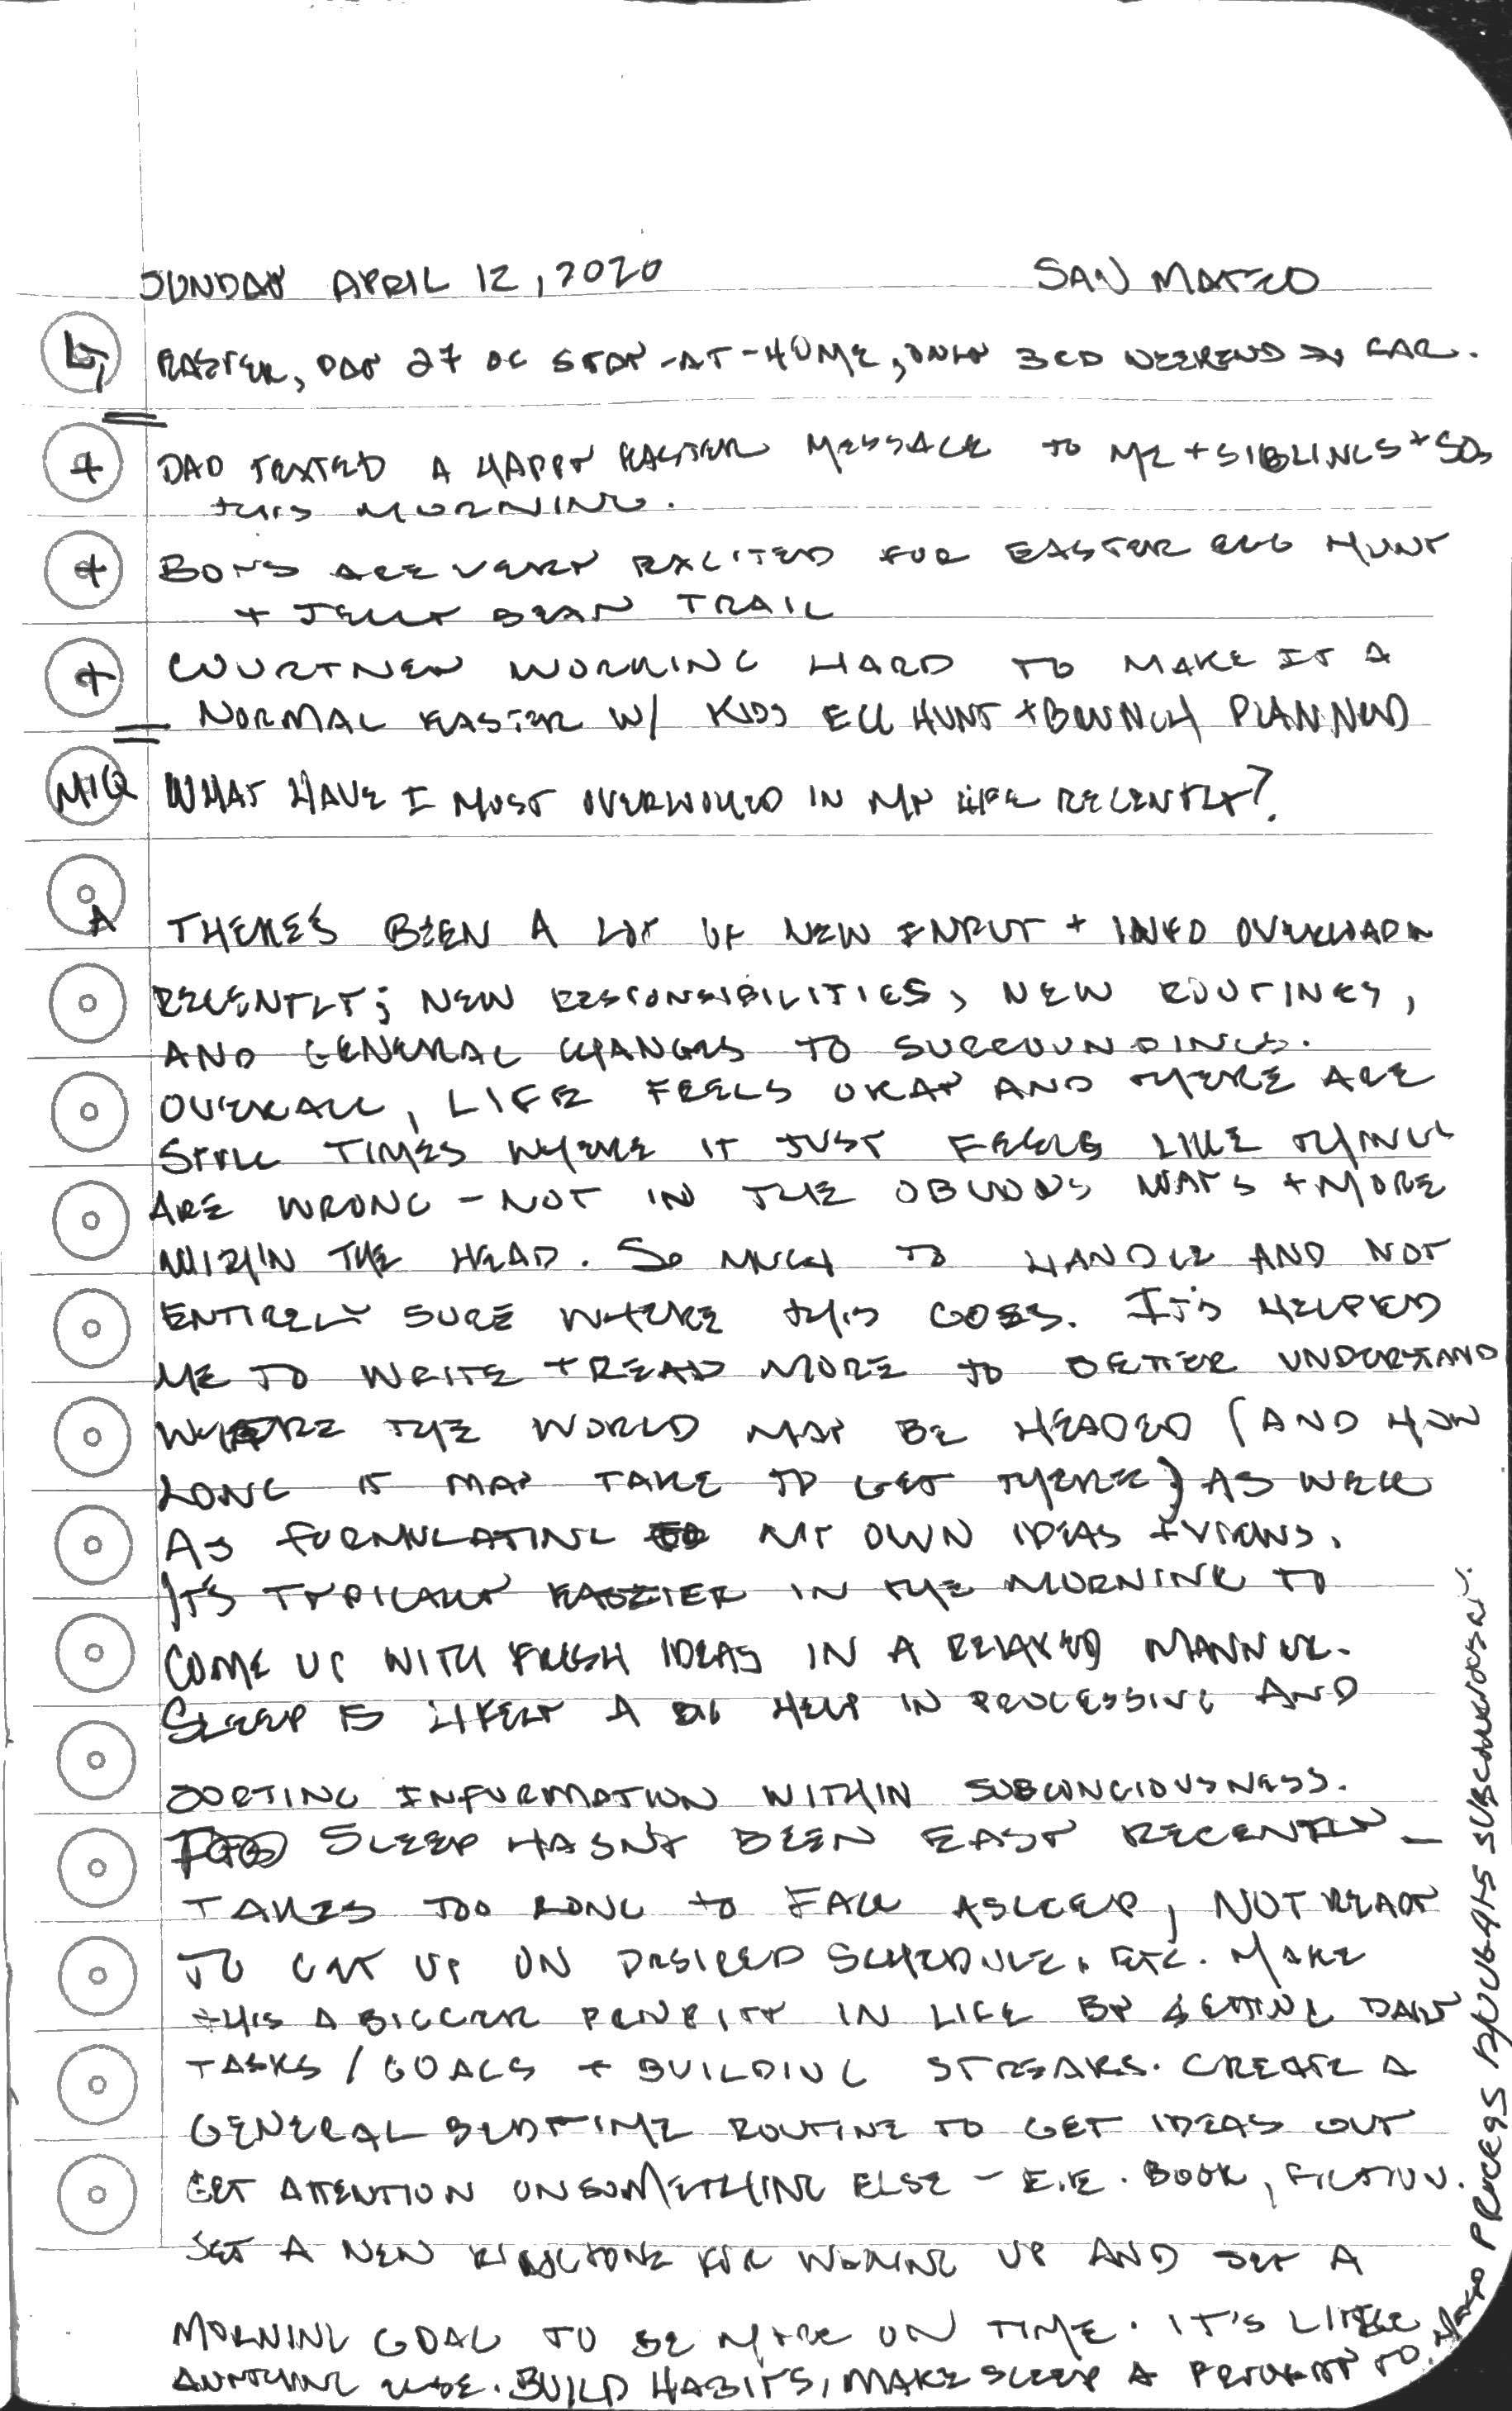 SUNDAY APRIL 12, 2020 SAN MATEO
EASTER, DAY 27 OF STAY-AT-HOME, ONLY 3RD WEEKEND SO FAR.
+ DAD TEXTED A HAPPY EASTER MESSAGE TO ME + SIBLINGS + SOs
THIS MORNING.
+ BOYS ARE VERY EXCITED FOR EASTER EGG HUNT
+ JELLY BEAN TRAIL
+ COURTNEY WORKING HARD TO MAKE IT A
NORMAL EASTER W/ KIDS EGG HUNT + BRUNCH PLANNED
MIQ WHAT HAVE I MOST OVERLOOKED IN MY LIFE RECENTLY?
A THERE'S BEEN A LOT OF NEW INPUT + INFO OVERLOAD
RECENTLY; NEW RESPONSIBILITIES, NEW ROUTINES,
AND GENERAL CHANGES TO SURROUNDINGS.
OVERALL, LIFE FEELS OKAY AND THERE ARE
STILL TIMES WHERE IT JUST FEELS LIKE THINGS
ARE WRONG - NOT IN THE OBVIOUS WAYS + MORE
WITHIN THE HEAD. SO MUCH TO HANDLE AND NOT
ENTIRELY SURE WHERE THIS GOES. IT'S HELPED
ME TO WRITE + READ MORE TO BETTER UNDERSTAND
WHERE THE WORLD MAY BE HEADED (AND HOW
LONG IT MAY TAKE TO GET THERE) AS WELL
AS FORMULATING MY OWN IDEAS + VIEWS.
IT'S TYPICALLY EASIER IN THE MORNING TO
COME UP WITH FRESH IDEAS IN A RELAXED MANNER.
SLEEP IS LIKELY A BIG HELP IN PROCESSING AND
SORTING INFORMATION WITHIN SUBCONCIOUSNESS.
SLEEP HASN'T BEEN EASY RECENTLY -
TAKES TOO LONG TO FALL ASLEEP, NOT READY
TO GET UP ON DESIRED SCHEDULE, ETC. MAKE
THIS A BIGGER PRIORITY IN LIFE BY SETTING DAILY
TASKS / GOALS + BUILDING STREAKS. CREATE A
GENERAL BEDTIME ROUTINE TO GET IDEAS OUT
GET ATTENTION ON SOMETHING ELSE - E.E. BOOK, FICTION.
SET A NEW RINGTONE FOR WAKING UP AND SET A
MORNING GOAL TO BE MORE ON TIME. IT'S LIKE
ANYTHING ELSE. BUILD HABITS, MAKE SLEEP A PRIORITY TO
PROCESS THOUGHTS SUBCONSCIOUSLY.